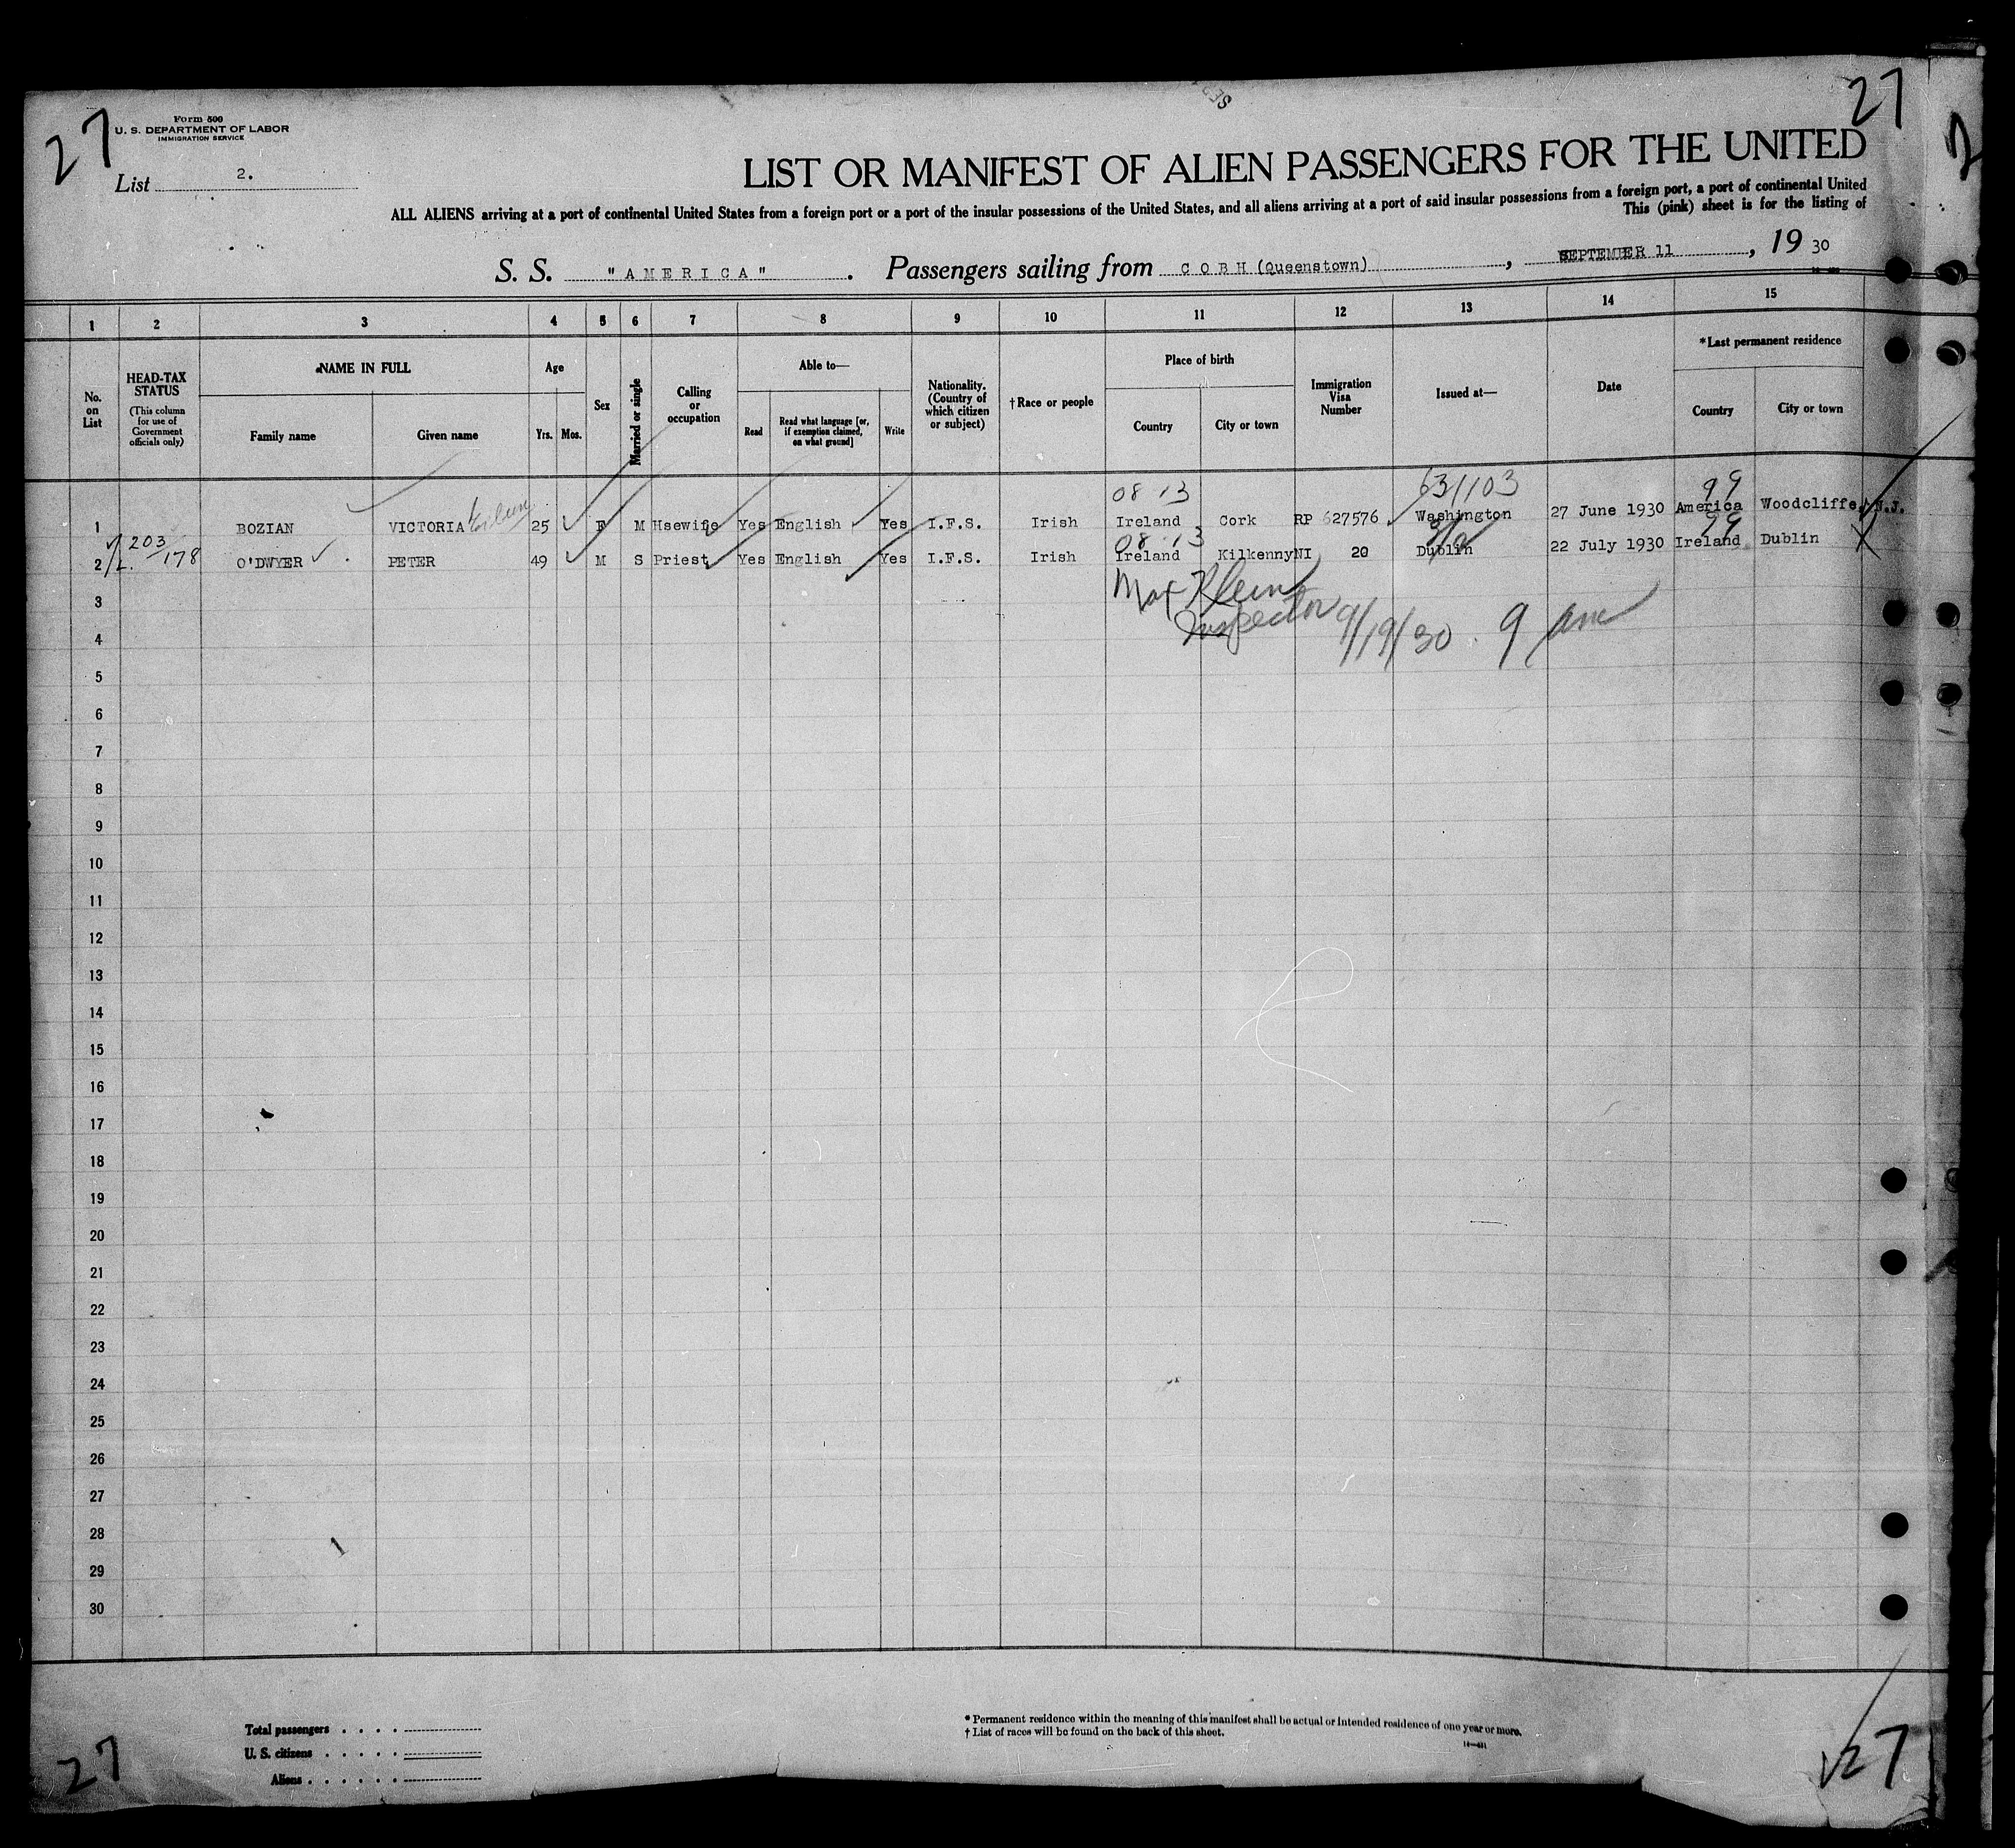 27
27
Form 500
U. S. DEPARTMENT OF LABOR
IMMIGRATION SERVICE
List 2.
LIST OR MANIFEST OF ALIEN PASSENGERS FOR THE UNITED
ALL ALIENS arriving at a port of continental United States from a foreign port or a port of the insular possessions of the United States, and all aliens arriving at a port of said insular possessions from a foreign port, a port of continental United
This (pink) sheet is for the listing of
S. S. "AMERICA". Passengers sailing from COBH (Queenstown), SEPTEMBER 11, 19 30
1 2 3 4 5 6 7 8 9 10 11 12 13 14 15
No. on List
HEAD-TAX STATUS
(This column for use of Government officials only)
NAME IN FULL
Family name
Given name
Age
Yrs. Mos.
Sex
Married or single
Calling or occupation
Able to—
Read
Read what language [or, if exemption claimed, on what ground]
Write
Nationality. (Country of which citizen or subject)
†Race or people
Place of birth
Country
City or town
Immigration Visa Number
Issued at—
Date
*Last permanent residence
Country
City or town
08 13 63/103 99
1 BOZIAN VICTORIA Eileen 25 F M Hsewife Yes English Yes I.F.S. Irish Ireland Cork RP 627576 Washington 27 June 1930 America Woodcliffe, N.J.
203/178 08 13 99
2 O'DWYER PETER 49 M S Priest Yes English Yes I.F.S. Irish Ireland Kilkenny NI 20 Dublin 22 July 1930 Ireland Dublin
Max Klein
3
Inspector 9/19/30 9 am
4
5
6
7
8
9
10
11
12
13
14
15
16
17
18
19
20
21
22
23
24
25
26
27
28
29
30
Total passengers
U. S. citizens
Aliens
* Permanent residence within the meaning of this manifest shall be actual or intended residence of one year or more.
† List of races will be found on the back of this sheet.
27
27